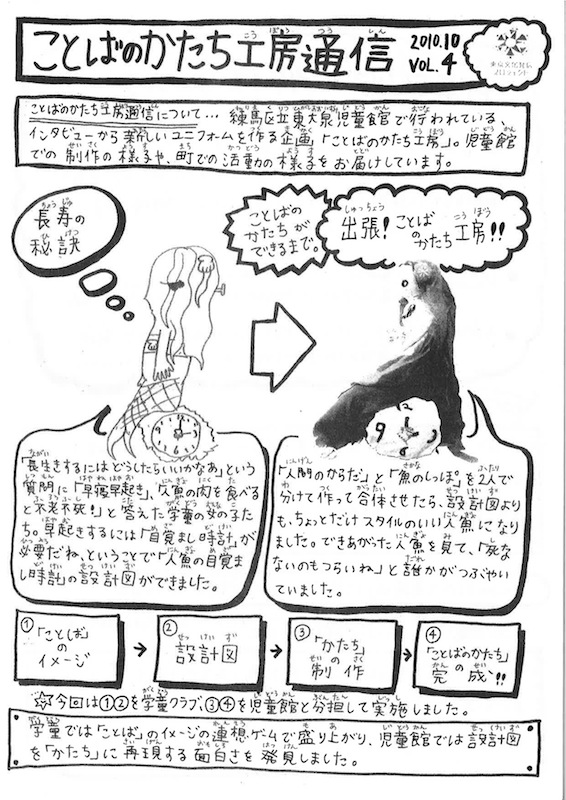 ことばのかたち工房通信 2010.10 VOL.4
ことばのかたち工房通信について… 練馬区立東大泉児童館で行われている、
インタビューから新しいユニフォームを作る企画、「ことばのかたち工房」。児童館
での制作の様子や、町での活動の様子をお届けしています。
長寿の
秘訣
ことばの
かたちが
できるまで。
出張!ことば
のかたち工房!!
「長生きするにはどうしたらいいかなあ」という
質問に「早寝早起き」、「人魚の肉を食べる
と不老不死!」と答えた学童の女の子た
ち。早起きするには「目覚まし時計」が
必要だね、ということで「人魚の目覚ま
し時計」の設計図ができました。
「人間のからだ」と「魚のしっぽ」を2人で
分けて作って合体させたら、設計図より
も、ちょっとだけスタイルのいい人魚になり
ました。できあがった人魚を見て、「死な
ないのもつらいね」と誰かがつぶやい
ていました。
①「ことば」
の
イメージ
②
設計図
③「かたち」
の
制作
④
「ことばのかたち」
の
完成!!
☆今回は①②を学童クラブ、③④を児童館と分担して実施しました。
学童では「ことば」のイメージの連想ゲームで盛り上がり、児童館では設計図
を「かたち」に再現する面白さを発見しました。